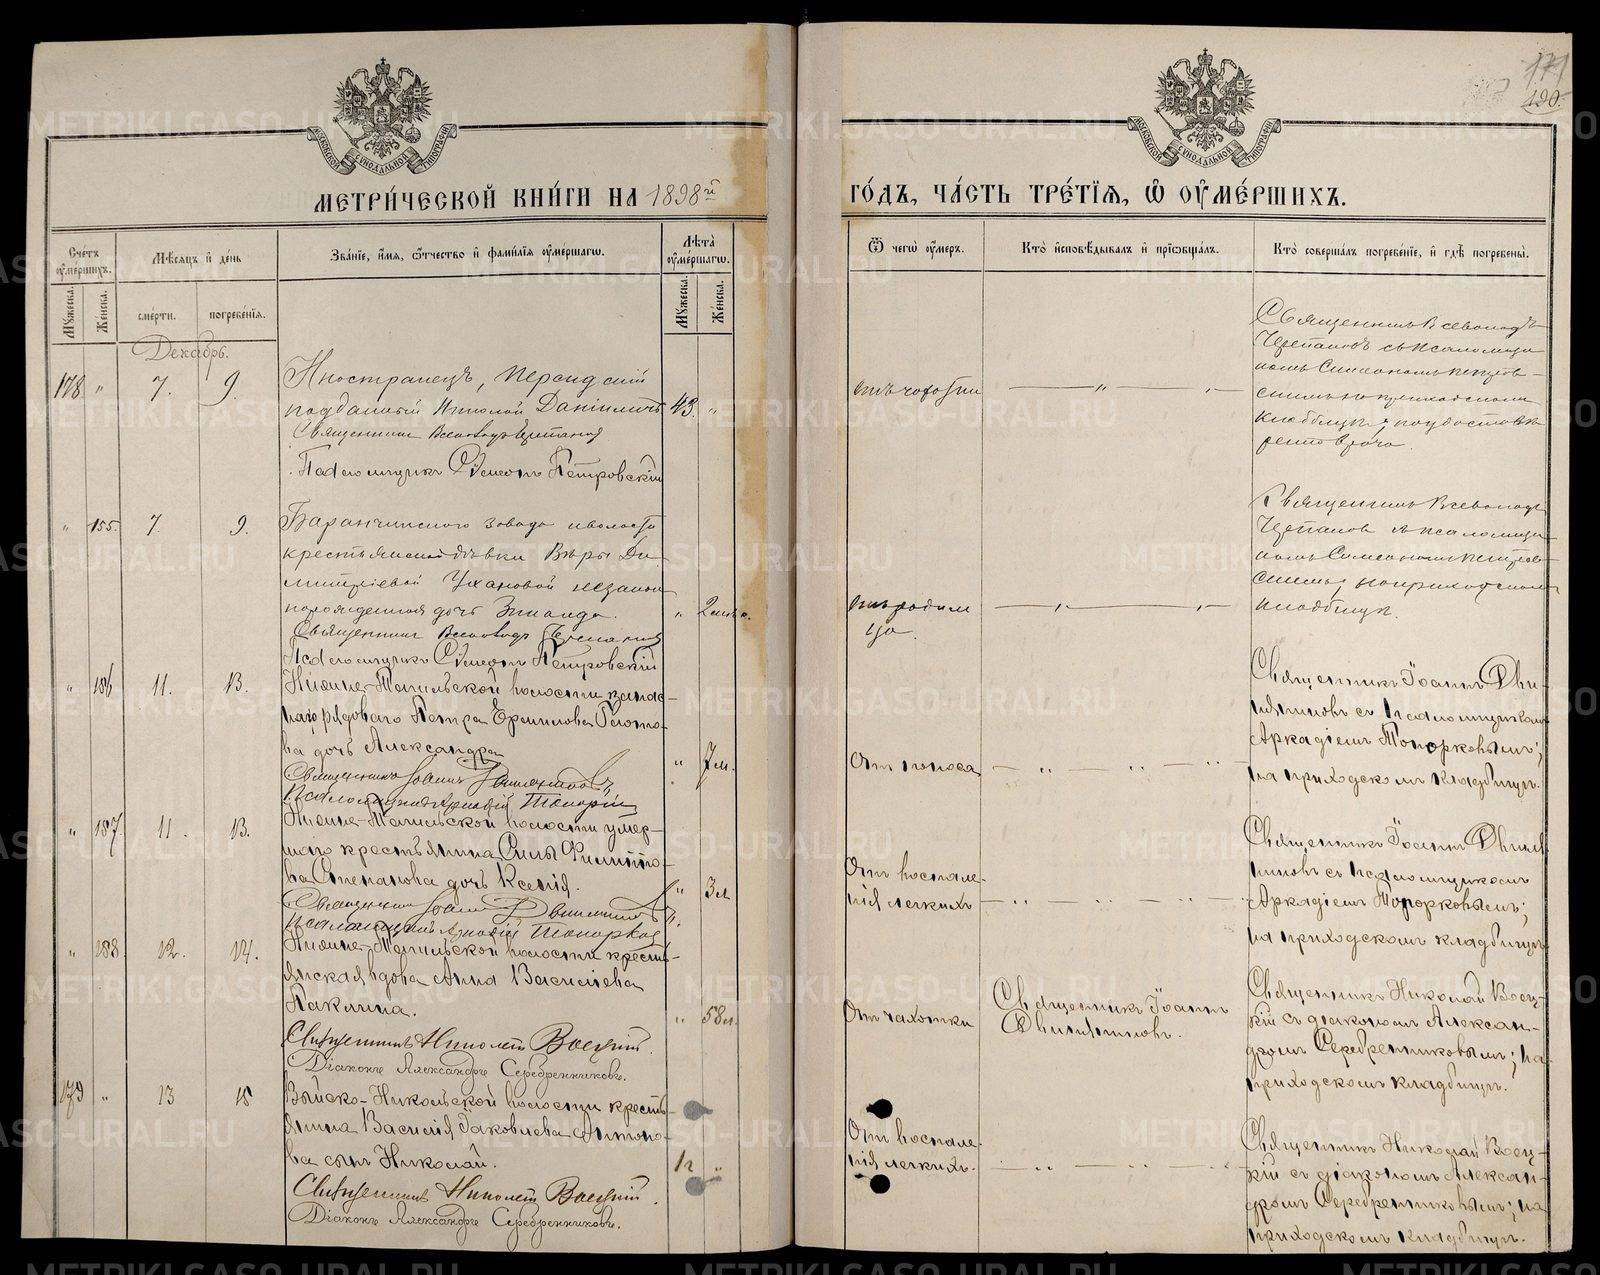 171
190.
МОСКОВСКОЙ СУНОДАЛЬНОЙ ТИПОГРАФІИ
МОСКОВСКОЙ СУНОДАЛЬНОЙ ТИПОГРАФІИ
МЕТРИ́ЧЕСКОЙ КНИ́ГИ НА 1898й
ГО́ДЪ, ЧА́СТЬ ТРЕ́ТІѦ, Ѡ ОУМЕ́РШИХЪ.
Сче́тъ оуме́ршихъ.
Мꙋжеска.
Же́нска.
Мѣ́сяцъ и день
сме́рти.
погребе́нія.
Зва́ніе, и́мя, ѻ́тчество и фами́лія оуме́ршагѡ.
Лѣта̀ оуме́ршагѡ.
Мꙋжеска.
Же́нска.
Ѿ чегѡ̀ оу́меръ.
Кто̀ исповѣ́дывалъ и пріѡбща́лъ.
Кто̀ соверша́лъ погребе́ніе, и гдѣ̀ погребены̀.
Декабрь.
178 " 7. 9.
Иностранецъ, персидскій
подданный Николай Даніиловъ
43. "
Священникъ Всеволодъ Черепановъ
Псаломщикъ Симеонъ Петровскій
отъ чахотки
Священникъ Всеволодъ
Черепановъ съ псаломщи
комъ Симеономъ Петров-
скимъ на приходскомъ
кладбищѣ, по удостовѣ
ренію врача.
" 155. 7. 9.
Баранчинского завода и волости
крестьянской дѣвки Вѣры Ди
митріевой Ухановой незакон
норожденная дочь Зинаида.
" 2 мѣс.
Священникъ Всеволодъ Черепановъ
Псаломщикъ Симеонъ Петровскій
отъ родим
ца.
Священникъ Всеволодъ
Черепановъ съ псаломщи
комъ Симеономъ Петров
скимъ, на приходскомъ
кладбищѣ.
" 186 11. 13.
Нижне-Тагильской волости запас-
наго рядоваго Петра Ермилова
ва дочь Александра
" 7 м.
Священникъ Іоаннъ Двинянинов
Псаломщикъ Аркадій Топорков
От поноса
Священникъ Іоаннъ Дви-
няниновъ с псаломщикомъ
Аркадіемъ Топорковымъ;
на приходскомъ кладбищѣ.
" 187 11. 13.
Нижне-Тагильской волости умер-
шаго крестьянина Силы Филиппо-
ва Степанова дочь Ксенія.
" 3 м
Священникъ Іоаннъ Двинянинов
Псаломщикъ Аркадій Топорков
От воспале-
нія легкихъ
Священникъ Іоаннъ Двиня
ниновъ с псаломщикомъ
Аркадіемъ Топорковымъ;
на приходскомъ кладбищѣ
" 188 12. 14.
Нижне-Тагильской волости кресть-
янская вдова Анна Васильева
Паклина.
" 58 л.
Священникъ Николай Воецкій.
Діаконъ Александръ Серебренниковъ.
От чахотки
Священникъ Іоаннъ
Двиняниновъ.
Священникъ Николай Воец-
кій с діакономъ Алексан-
дромъ Серебренниковымъ; на
приходскомъ кладбищѣ.
179 " 13 15
Выйско-Никольской волости кресть-
янина Василія Іаковлева Антоно-
ва сынъ Николай.
1 г "
Священникъ Николай Воецкій.
Діаконъ Александръ Серебренниковъ.
От воспале-
нія легкихъ.
Священникъ Николай Воец-
кій с діакономъ Алексан-
дромъ Серебренниковымъ; на
приходскомъ кладбищѣ.
METRIKI.GASO-URAL.RU